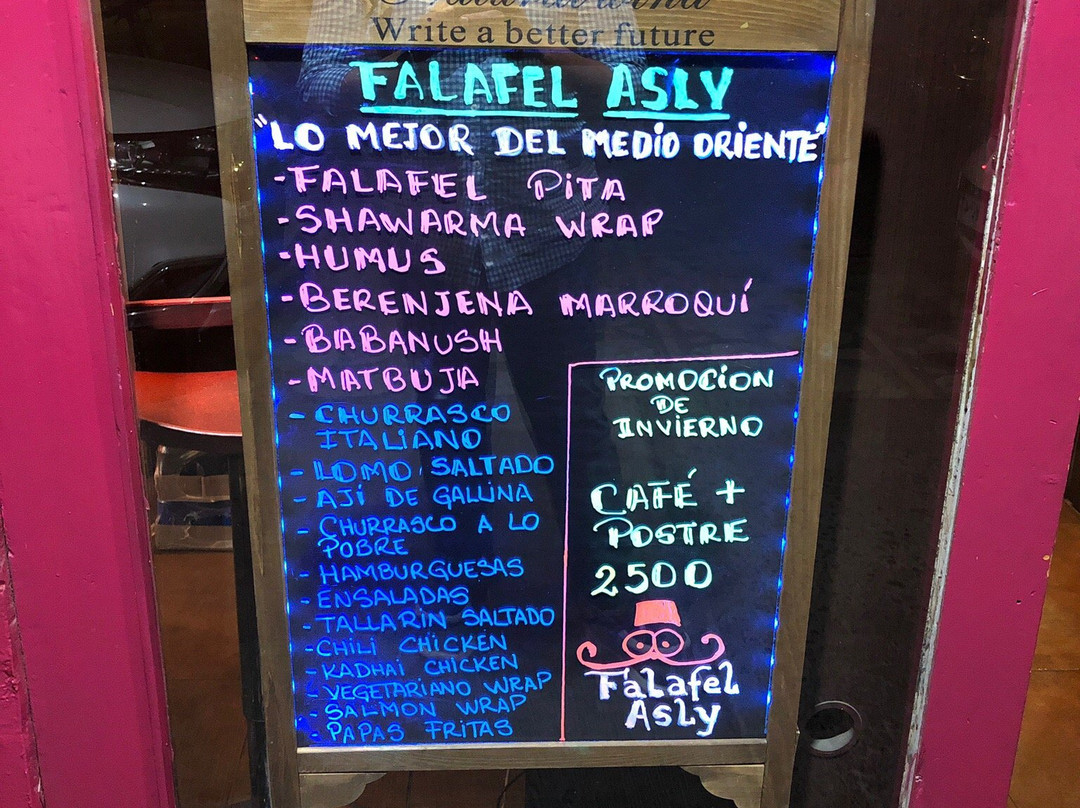 Write a better future
FALAFEL ASLY
"LO MEJOR DEL MEDIO ORIENTE"
-FALAFEL PITA
-SHAWARMA WRAP
-HUMUS
-BERENJENA MARROQUÍ
-BABANUSH
-MATBUJA
- CHURRASCO
ITALIANO
- LOMO SALTADO
- AJÍ DE GALLINA
- CHURRASCO A LO
POBRE
- HAMBURGUESAS
- ENSALADAS
- TALLARIN SALTADO
-CHILI CHICKEN
-KADHAI CHICKEN
- VEGETARIANO WRAP
- SALMON WRAP
- PAPAS FRITAS
PROMOCION
DE
INVIERNO
CAFÉ +
POSTRE
2500
Falafel
Asly